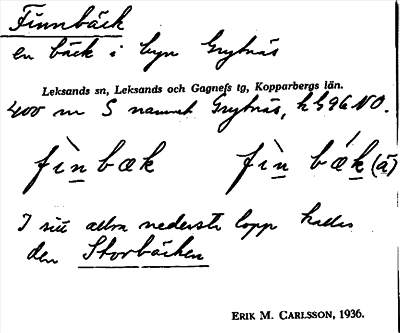 Finnbäck
en bäck i byn Grytnäs
Leksands sn, Leksands och Gagnefs tg, Kopparbergs län.
400 m S namnet Grytnäs, k G96 NO.
fìnbæk fìn bǽk (ä)
I sitt allra nedersta lopp kallas
den Storbäcken
ERIK M. CARLSSON, 1936.